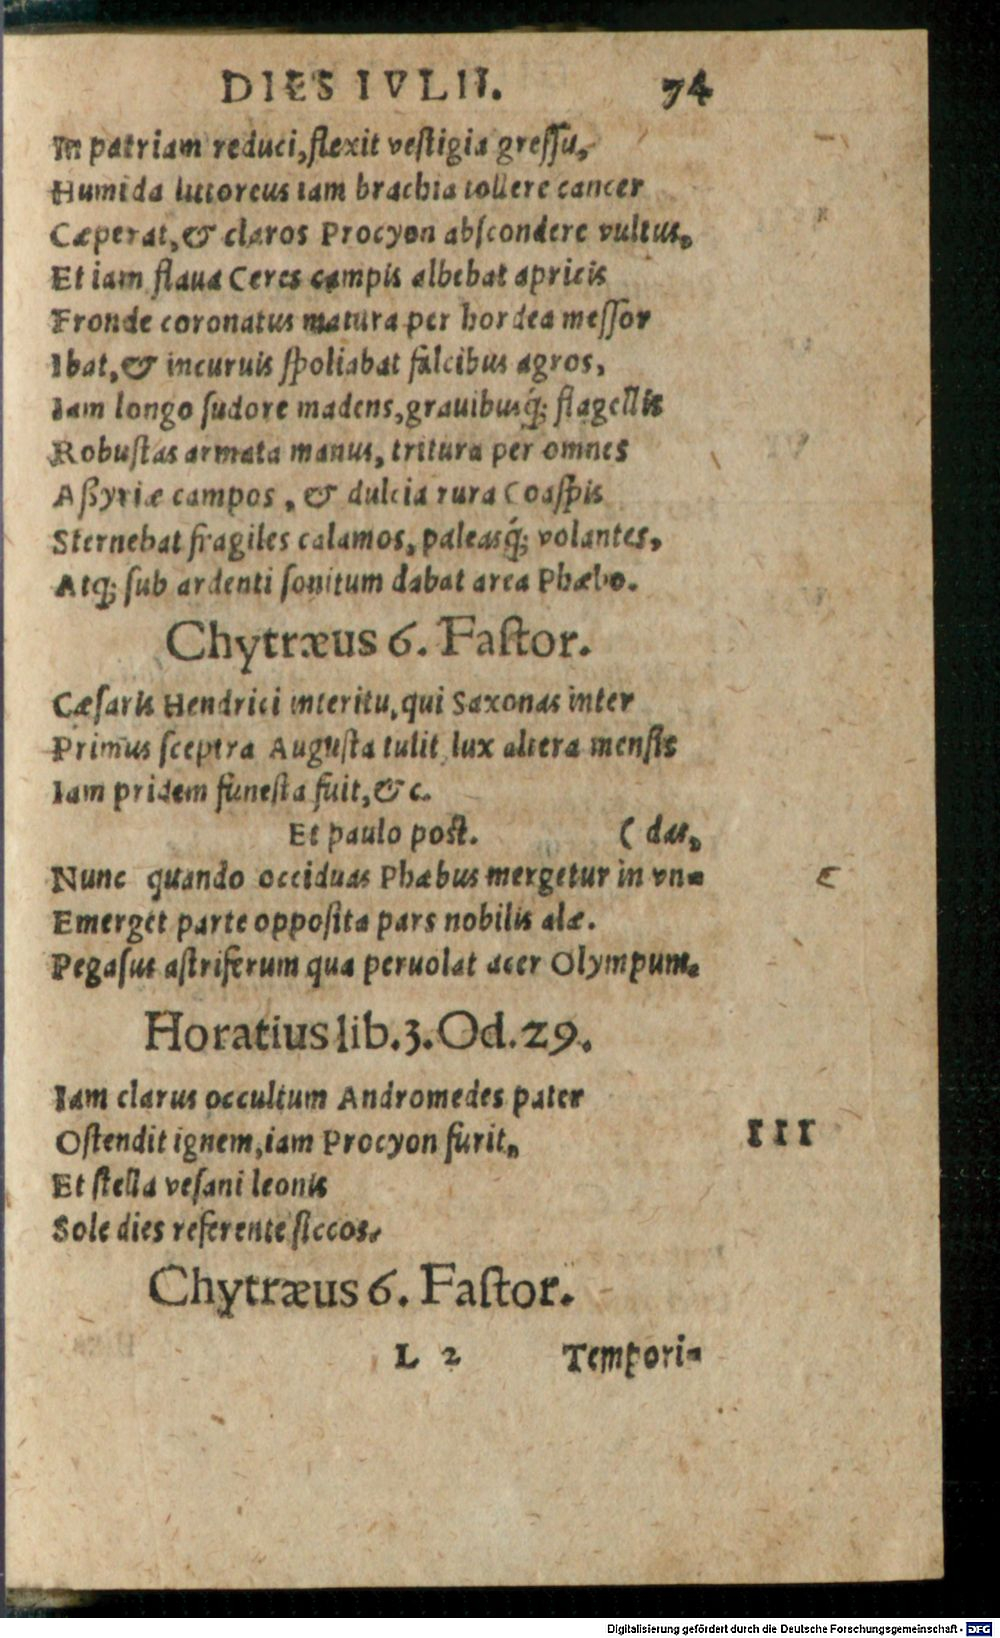 DIES IVLII. 74
In patriam reduci, flexit veſtigia greſſu,
Humida littoreus iam brachia tollere cancer
Cæperat, & claros Procyon abſcondere vultus,
Et iam flaua Ceres campis albebat apricis
Fronde coronatus matura per hordea meſſor
Ibat, & incuruis ſpoliabat falcibus agros,
Iam longo ſudore madens, grauibusq́; flagellis
Robuſtas armata manus, tritura per omnes
Aßyriæ campos, & dulcia rura Coaſpis
Sternebat fragiles calamos, paleasq́; volantes,
Atq; ſub ardenti ſonitum dabat area Phæbo.
Chytræus 6. Faſtor.
Cæſaris Hendrici interitu, qui Saxonas inter
Primus ſceptra Auguſta tulit, lux altera menſis
Iam pridem funeſta fuit, &c.
Et paulo poſt. ( das,
Nunc quando occiduas Phæbus mergetur in vn-
Emerget parte oppoſita pars nobilis alæ.
Pegaſus aſtriferum qua peruolat acer Olympum.
Horatius lib. 3. Od. 29.
Iam clarus occultum Andromedes pater
Oſtendit ignem, iam Procyon furit,
III
Et ſtella veſani leonis
Sole dies referente ſiccos.
Chytræus 6. Faſtor.
L 2 Tempori-
Digitalisierung gefördert durch die Deutsche Forschungsgemeinschaft - DFG